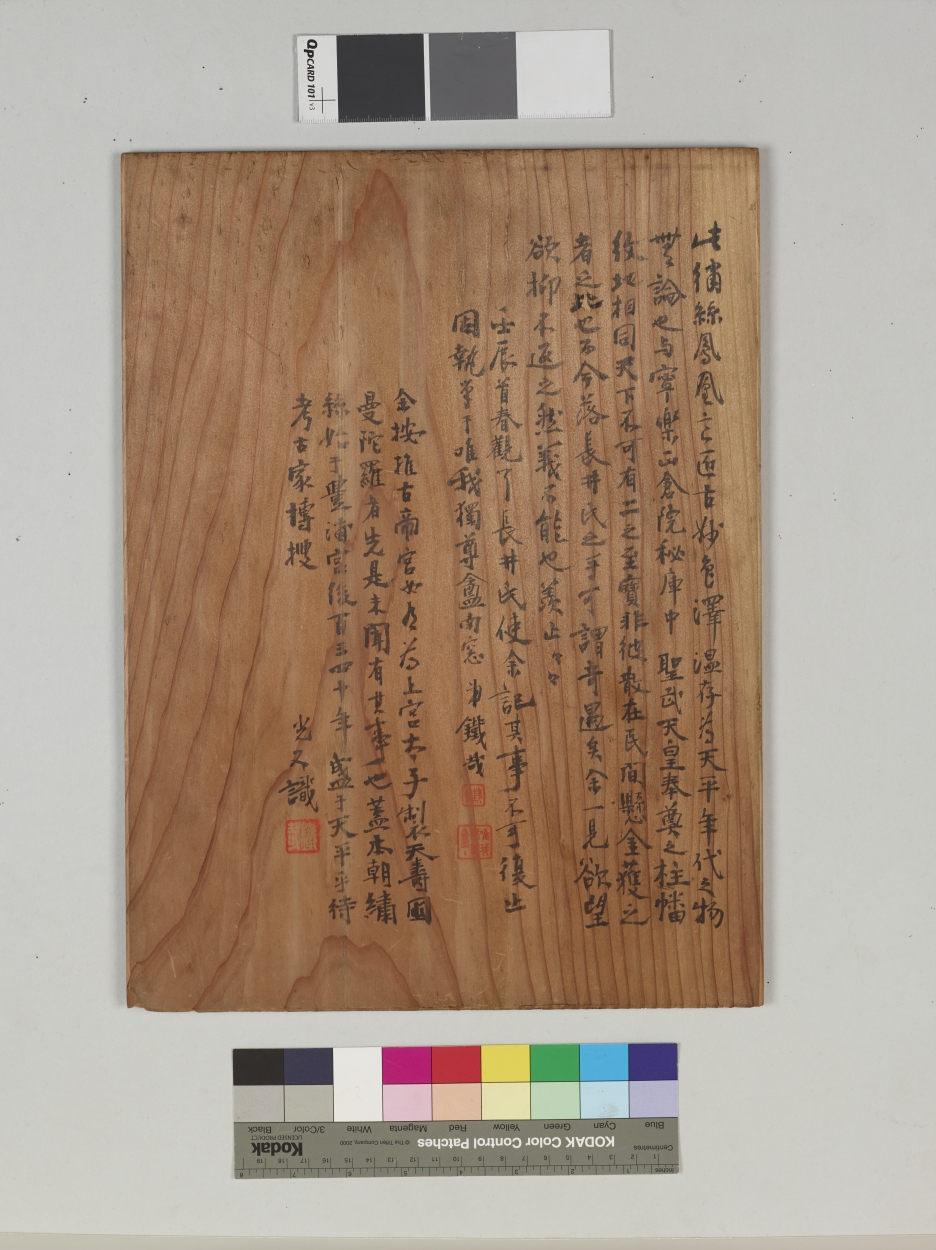 QPCARD 101 v3
此繡絲鳳凰之迹古妙色澤溫存為天平年代之物
無論也与寧樂正倉院秘庫中 聖武天皇奉奠之柱幡
紋切相同天下不可有二之至寶非彼散在民間懸金獲之
者之比也而今落長井氏之手可謂奇遇矣余一見欲望
欲抑不返之然義不能也羨止々々
壬辰首春觀了長井氏使余記其事不可復止
因執筆于唯我獨尊龕南窓 鐵哉
余按推古帝宮女為上宮太子製天壽國
曼陀羅者先是未聞有其事也蓋本朝繡
絲始于豐浦宮後百三四十年盛于天平乎待
考古家博搜
光又識
Blue Cyan Green Yellow Red Magenta White 3/Color Black
KODAK Color Control Patches © The Tiffen Company, 2000 Kodak LICENSED PRODUCT
Centimetres 1 2 3 4 5 6 7 8 9 10 11 12 13 14 15 16 17 18 19
Inches 1 2 3 4 5 6 7 8